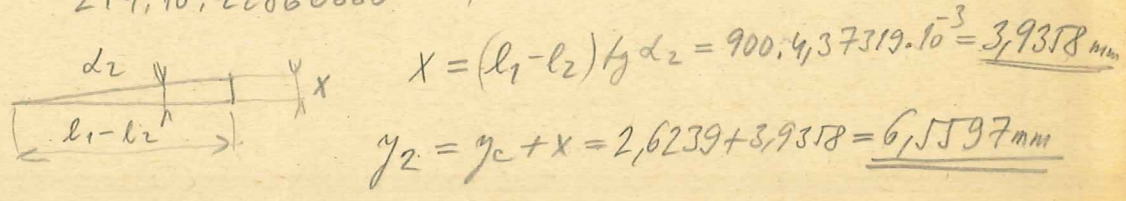 α₂
x
l₁-l₂
x = (l₁-l₂) tg α₂ = 900.4,37319.10⁻³ = 3,9358 mm
y₂ = y_c + x = 2,6239 + 3,9358 = 6,5597 mm